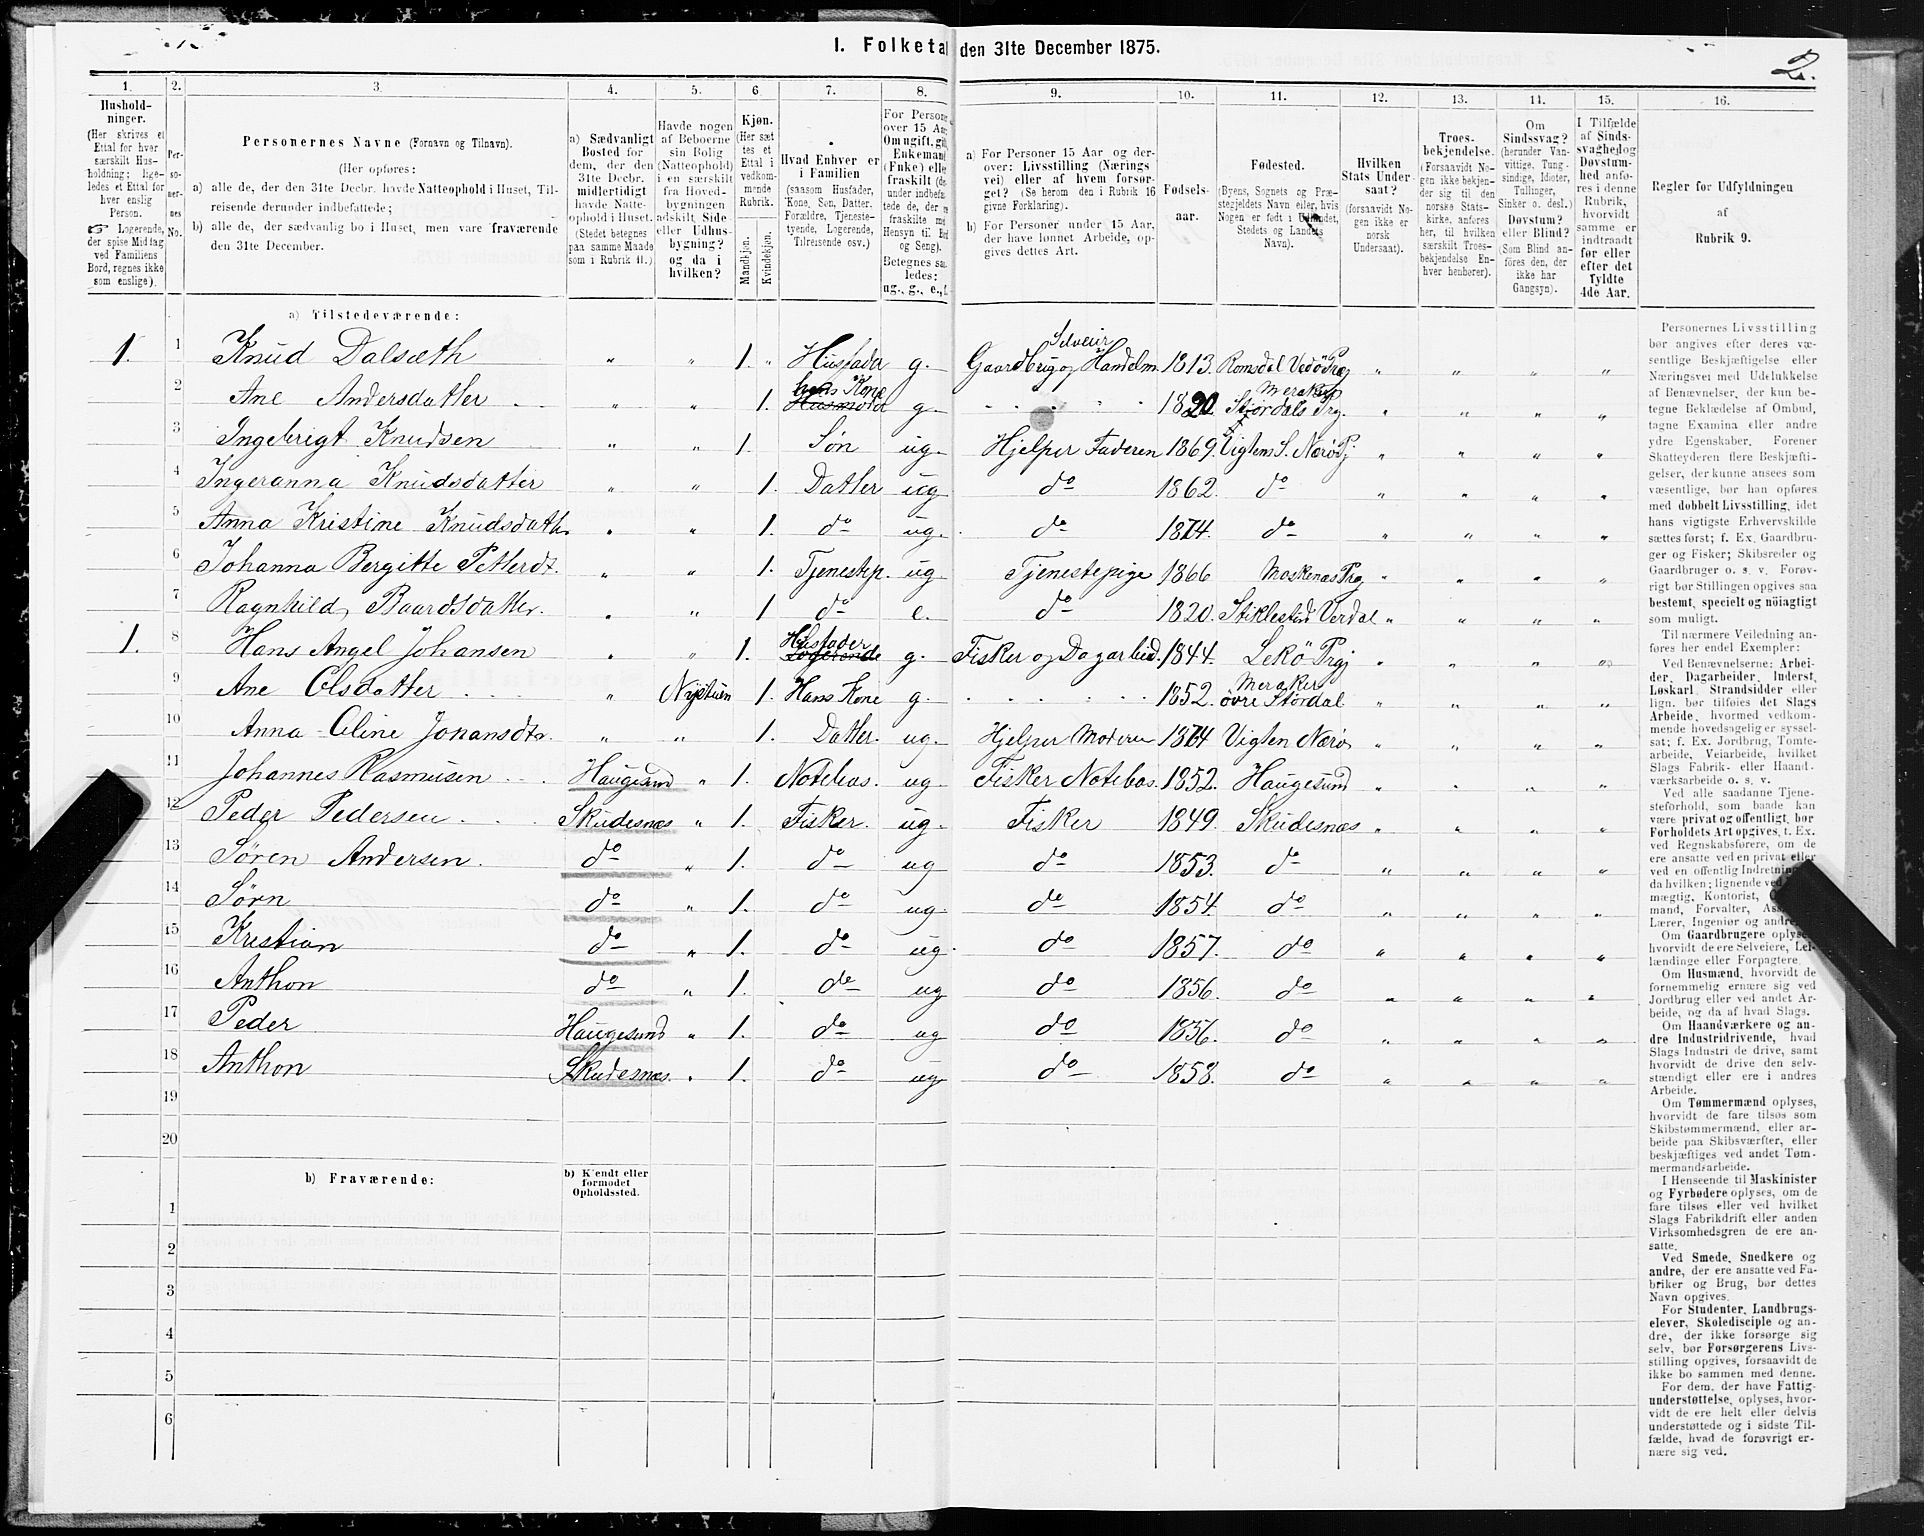 I. Folketal den 31te December 1875.
2.
1. 2. 3. 4. 5. 6. 7. 8. 9. 10. 11. 12. 13. 14. 15. 16.
Hushold-
ninger.
(Her skrives et
Ettal for hver
særskilt Hus-
holdning; lige-
ledes et Ettal for
hver enslig
Person.
☞ Logerende,
der spise Middag
ved Familiens
Bord, regnes ikke
som enslige).
Per-
so-
ner-
nes
No.
Personernes Navne (Fornavn og Tilnavn).
(Her opføres:
a) alle de, der den 31te Decbr. havde Natteophold i Huset, Til-
reisende derunder indbefattede;
b) alle de, der sædvanlig bo i Huset, men vare fraværende
den 31te December.
a) Sædvanligt
Bosted for
dem, der den
31te Decbr.
midlertidigt
havde Natte-
ophold i Huset.
(Stedet betegnes
paa samme Maade
som i Rubrik 11.)
Havde nogen
af Beboerne
sin Bolig
(Natteophold)
i en særskilt
fra Hoved-
bygningen
adskilt Side-
eller Udhus-
bygning?
og da i
hvilken?
Kjøn.
(Her sæt-
tes et
Ettal i
vedkom-
mende
Rubrik.
Mandkjøn.
Kvindekjøn.
Hvad Enhver er
i Familien
(saasom Husfader,
Kone, Søn, Datter.
Forældre, Tjeneste-
tyende, Logerende,
Tilreisende osv.)
For Persone
over 15 Aar
Om ugift, gift
Enkemand
(Enke) eller
fraskilt (de
under indbefat-
tede de, der
fraskilte m
Hensyn til Bo
og Seng).
Betegnes saa-
ledes:
ug., g., e., f.
a) For Personer 15 Aar og der-
over: Livsstilling (Nærings
vei) eller af hvem forsør-
get? (Se herom den i Rubrik 16
givne Forklaring).
b) For Personer under 15 Aar,
der have lønnet Arbeide, op-
gives dettes Art.
Fødsels-
aar.
Fødested.
(Byens, Sognets og Præ-
stegjeldets Navn eller, hvis
Nogen er født i Udlandet,
Stedets og Landets
Navn).
Hvilken
Stats Under-
saat?
(forsaavidt No-
gen ikke er
norsk
Undersaat).
Troes-
bekjendelse.
(Forsaavidt No-
gen ikke bekjen-
der sig til den
norske Stats-
kirke, anføres
her, til hvilken
særskilt Troes-
bekjendelse En-
hver henhører).
Om
Sindssvag?
(herunder Van-
vittige, Tung-
sindige, Idioter,
Tullinger,
Sinker o. desl.)
Døvstum?
eller Blind?
(Som Blind an-
føres den, der
ikke har
Gangsyn).
I Tilfælde
af Sinds-
svaghed og
Døvstum-
hed anfø-
res i denne
Rubrik,
hvorvidt
samme er
indtraadt
før eller
efter det
fyldte
4de Aar.
Regler for Udfyldningen
af
Rubrik 9.
a) Tilstedeværende:
1. 1 Knud Dalsæth " " 1. " Husfada g. Selveier Gaardbrug og Handelm. 1813. Romsdal Vedö Prg " " " "
2 Ane Andersdatter " " 1. hans Kone Husmoder g. " " " 1820. Meraker Stjordals Prg. " " " "
3 Ingebrigt Knudsen " " 1. Søn ug. Hjelper Faderen 1869. Vigtens S. Nærö Pj " " " "
4 Ingeranna Knudsdatter " " 1. Datter ug do 1862. do " " " "
5 Anna Kristine Knudsdatter " " 1. do ug. do 1874. do " " " "
6 Johanna Bergitte Petterdt. " " 1. Tjenestep. ug Tjenestepige 1866 Moskenæs Prg " " " "
7 Ragnhild, Baardsdatter. " " 1 do e. do 1820. Stiklestad Verdal " " " "
1. 8 Hans Angel Johansen " " 1. Husfader Logerende g. Fisker og Dagarbeid. 1844. Lekö Prgj " " " "
9 Ane Olsdatter " Nystuen 1. Hans Kone g. " " " 1852. Meraker övre Stördal " " " "
10 Anna Oline Johansdtr " " 1. Datter. ug. Hjelper Moderen 1874 Vigten Nærø " " " "
11 Johannes Rasmusen Haugesund " 1. Notebas. ug. Fisker Notebas. 1852. Haugesund " " " "
12 Peder Pedersen Skudesnæs " 1. Fisker. ug. Fisker 1849. Skudesnæs " " " "
13 Søren Andersen. do " 1. do ug do 1853. do " " " "
14 Sørn do " 1. do ug. do 1854. do " " " "
15 Kristian do " 1. do ug. do 1857. do " " " "
16 Anthon do " 1. do ug do 1856. do " " " "
17 Peder Haugesund " 1. do ug do 1856. do " " " "
18 Anthon Skudesnæs. " 1. do ug do 1858. do " " " "
19
20
b) Fraværende:
b) Kjendt eller
formodet
Opholdssted.
1
2
3
4
5
6
Personernes Livsstilling
bør angives efter deres væ-
sentlige Beskjæftigelse eller
Næringsvei med Udelukkelse
af Benævnelser, der kun be-
tegne Beklædelse af Ombud,
tagne Examina eller andre
ydre Egenskaber. Forener
Skatteyderen flere Beskjæfti-
gelser, der kunne ansees som
væsentlige, bør han opføres
med dobbelt Livsstilling, idet
hans vigtigste Erhvervskilde
sættes først; f. Ex. Gaardbru-
ger og Fisker; Skibsreder og
Gaardbruger o. s. v. Forøv-
rigt bør Stillingen opgives saa
bestemt, specielt og nöiagtigt
som muligt.
Til nærmere Veiledning an-
føres her endel Exempler:
Ved Benævnelserne: Arbei-
der, Dagarbeider, Inderst,
Løskarl, Strandsidder eller
lign. bør tilføies det Slags
Arbeide, hvormed vedkom-
mende hovedsagelig er syssel-
sat; f. Ex. Jordbrug, Tomte-
arbeide, Veiarbeide, hvilket
Slags Fabrik- eller Haand-
værksarbeide o. s. v.
Ved alle saadanne Tjene-
steforhold, som baade kan
være privat og offentligt, bør
Forholdets Art opgives, t. Ex.
ved Regnskabsførere, om de
ere ansatte ved en privat eller
ved en offentlig Indretning
da hvilken; lignende ved
mægtig, Kontorist,
mand, Forvalter,
Lærer, Ingeniør og andre
Om Gaardbrugere oplyses,
hvorvidt de ere Selveiere, Lei-
lændinge eller Forpagtere.
Om Husmænd, hvorvidt de
fornemmelig ernære sig ved
Jordbrug eller ved andet Ar-
beide, og da af hvad Slags.
Om Haandværkere og an-
dre Industridrivende, hvad
Slags Industri de drive, samt
hvorvidt de drive den selv-
stændigt eller ere i andres
Arbeide.
Om Tømmermænd oplyses,
hvorvidt de fare tilsøs som
Skibstømmermænd, eller ar-
beide paa Skibsværfter, eller
beskjæftiges ved andet Tøm-
mermandsarbeide.
I Henseende til Maskinister
og Fyrbødere oplyses, om de
fare tilsøs eller ved hvilket
Slags Fabrikdrift eller anden
Virksomhedsgren de ere an-
satte.
Ved Smede, Snedkere og
andre, der ere ansatte ved Fa-
briker og Brug, bør dettes
Navn opgives.
For Studenter, Landbrugs-
elever, Skoledisciple og an-
dre, der ikke forsørge sig
selv, bør Forsørgerens Livs-
stilling opgives, forsaavidt de
ikke bo sammen med denne.
For dem, der have Fattig-
understøttelse, oplyses, hvor-
vidt de ere helt eller delvis
understøttede og i sidste Til-
fælde, hvad de forøvrigt er-
nære sig ved.